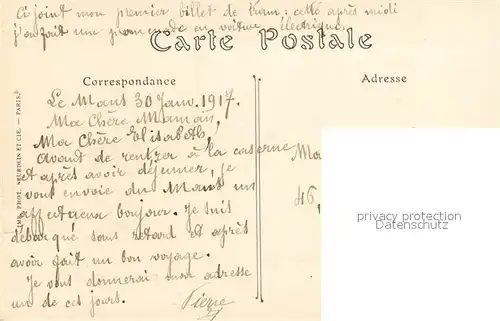 Ci joint mon premier billet de tram : cette après midi
j'ai fait une promenade en voiture électrique.
Carte Postale
Correspondance
Adresse
Le Mans 30 Janv. 1917.
Ma Chère Maman,
Ma Chère Elisabeth,
Avant de rentrer à la caserne
et après avoir déjeuner, je
vous envoie du Mans un
affectueux bonjour. Je suis
débarqué sans retard et après
avoir fait un bon voyage.
Je vous donnerai mon adresse
un de ces jours.
Pierre
46,
IMP. PHOT. NEURDEIN ET CIE. — PARIS
privacy protection
Datenschutz